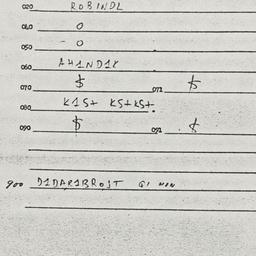 020 ROBINDL
040 0
050 - 0
060 AH1ND1K
070 $ 072 $
080 K1St KStKSt.
090 $ 092 . $
900 D1DAR1BROJT G1